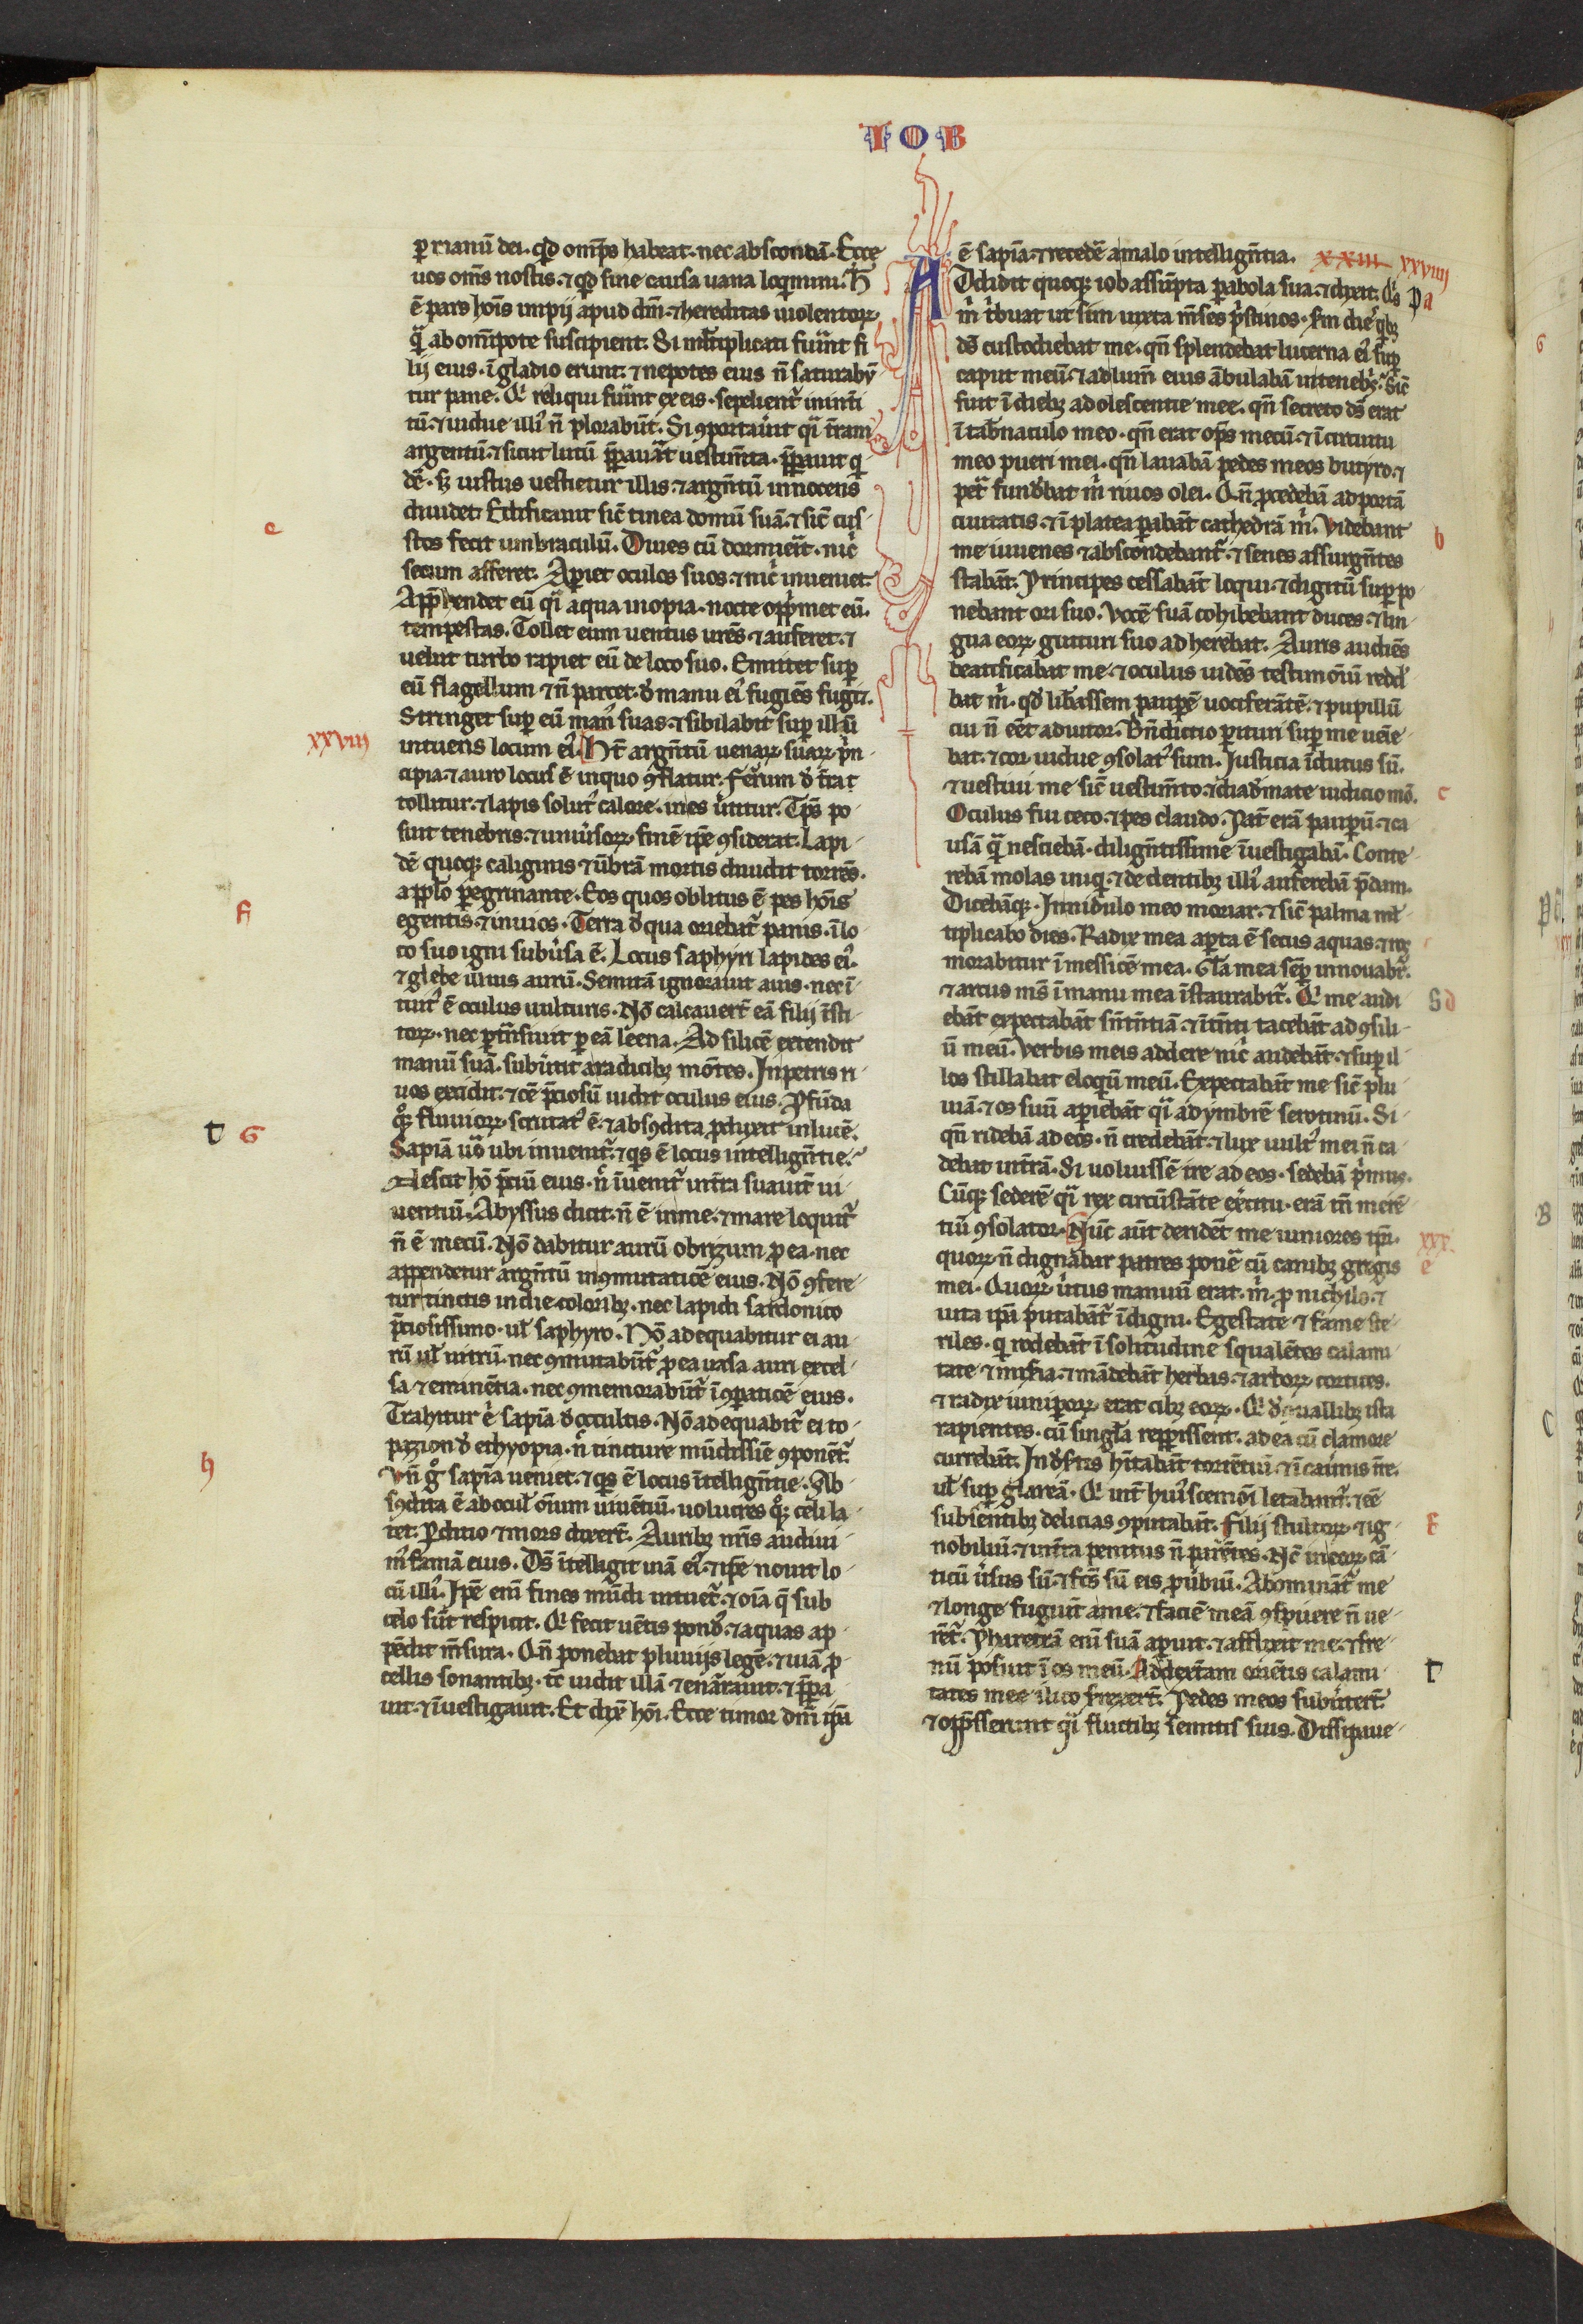 IOB
p manū dei. qd omps habeat. nec abscondā. Ecce
uos oms nostis. ⁊ qd sine causa uana loqimini. H̄
ē pars hoīs impij apud dm̄. ⁊ hereditas uiolentoꝝ.
q̄ ab omīpote suscipient. Si mltiplicati fuint fi
lij eius. ī gladio erunt. ⁊ nepotes eius n̄ saturabū
tur pane. Qi reliqui fuint ex eis. sepelient̄ inint̄i
tū. ⁊ uidue illi' n̄ plorabūt. Si 9portauīt qi tram
argentū. ⁊ sicut lutū p̄pauāt uestim̄ta. p̄pauit qi
dē. sꝫ iustus uestietur illis. ⁊ argn̄tū innocens
diuidet. Edificauit sic̄ tinea domū suā. ⁊ sic̄ cus
tos fecit umbraculū. Diues cū dormieīt. nic̄
secum afferet. Aperiet oculos suos. ⁊ nic̄ inueniet.
App̄hendet eū qi aqua inopia. nocte opp̄met eū.
tempestas. Tollet eum uentus urēs ⁊ auferet. ⁊
uelut turbo rapiet eū de loco suo. Emittet sup
eū flagellum ⁊ n̄ parcet. d' manu ei' fugiēs fugit.
Stringet sup eū man' suas. ⁊ sibilabit sup illū
intuens locum ei'. Ht̄ argn̄tū uenaꝝ suaꝝ p̄n
xxviii
cipia. ⁊ auro locus ē inquo 9flatur. Ferrum d' t̄ra
tollitur. ⁊ lapis solut' calore. in es ūtitur. Tp̄s po
suit tenebris. ⁊ uniūsoꝝ finē ip̄e 9siderat. Lapi
dē quoqꝫ caliginis ⁊ ūbrā mortis diuidit torrēs.
a pplo pegrinante. Eos quos oblitus ē pes hoīs
egentis. ⁊ inuios. Terra d' qua oriebat̄ panis. ī lo
co suo igni subūsa ē. Locus saphyri lapides ei'.
⁊ glebe illius aurū. Semitā ignorauit auis. nec ī
tuit' ē oculus uulturis. Nō calcauert̄ eā filij īsti
toꝝ. nec ptn̄siuit p eā leena. Ad silicē extendit
manū suā. subūtit a radicibꝫ mōtes. In petris ri
uos excidit. ⁊ oē p̄ciosū uidit oculus eius. Pfūda
qꝫ fluuioꝝ scrutat' ē. ⁊ abs9dita pduxit in lucē.
Sapiā uō ubi inuenit̄. ⁊ qis ē locus intellign̄tie.
Nescit hō p̄ciū eius. n̄ īuenit̄ in t̄ra suauit̄ ui
uentiū. Abyssus dicit. n̄ ē in me. ⁊ mare loquit̄
n̄ ē mecū. Nō dabitur aurū obrizum p ea. nec
appendetur argn̄tū in 9mutatiōe eius. Nō 9fere
tur tinctis indie coloribꝫ. nec lapidi sardonico
p̄ciosissimo. ul' saphyro. Nō adequabitur ei au
rū ul' uitrū. nec 9mutabūt̄ p ea uasa auri excel
sa ⁊ eminētia. nec 9memorabūt̄ ī 9patiōe eius.
Trahitur ē sapiā d' occultis. Nō adequabit̄ ei to
pazion d' ethyopia. n̄ tincture mūdissie 9ponēt̄.
Vn̄ g° sapiā ueniet. ⁊ qis ē locus ītellign̄tie. Ab
s9dita ē ab ocul' oīum uiuētiū. uolucres qꝫ celi la
tet. Pditio ⁊ mors dixert̄. Auribꝫ nr̄is audiui
m' famā eius. Ds̄ ītelligit uiā ei'. ⁊ ip̄e nouit lo
cū illi'. Ip̄e enī fines mūdi intuet̄. ⁊ oīa q̄ sub
celo sūt respicit. Qi fecit uētis pond'. ⁊ aquas ap
pēdit m̄sura. Qn̄ ponebat pluuijs legē. ⁊ uiā p
cellis sonantibꝫ. tc̄ uidit illā ⁊ enarrauit. ⁊ p̄pa
uit. ⁊ īuestigauit. Et dixē hoī. Ecce timor dm̄i ip̄a
e
F
t G
h
ē sapiā. ⁊ recedē a malo intellign̄tia. xxiii xxviiii
Addidit quoqꝫ iob assūpta pabola sua. ⁊ dixit. Qis
m̄ t̄buat ut sim iuxta m̄ses p̄stinos. sm̄ dies qibꝫ
ds̄ custodiebat me. qn̄ splendebat lucerna ei' sup
caput meū. ⁊ ad lum̄ eius ābulabā in tenebris. Sic̄
fui ī diebꝫ adolescentie mee. qn̄ secreto ds̄ erat
ī tab̄naculo meo. qn̄ erat ops̄ mecū. ⁊ ī circuitu
meo pueri mei. qn̄ lauabā pedes meos butyro. ⁊
pet̄ fundebat m̄ riuos olei. Qn̄ pcedebā ad portā
ciuitatis. ⁊ ī platea pabāt cathedrā m̄. Videbant
me iuuenes ⁊ abscondebant̄. ⁊ senes assurgn̄tes
stabāt. Principes cessabāt loqui. ⁊ digitū sup po
nebant ori suo. Vocē suā cohibebant duces. ⁊ lin
gua eoꝝ gutturi suo adherebat. Auris audiēs
beatificabat me. ⁊ oculus uidēs testimōiū redd'
bat m̄. qd libassem paupē uociferātē. ⁊ pupillū
cui n̄ eēt adiutor. Bn̄dictio pituri sup me ueīe
bat. ⁊ cor uidue 9solat' sum. Iusticia īdutus sū.
⁊ uestiui me sic̄ uestim̄to. ⁊ diad'mate iudicio mō.
Oculus fui ceco. ⁊ pes claudo. Pat̄ erā paupū. ⁊ ca
usā q̄ nesciebā. dilign̄tissime īuestigabā. Conte
rebā molas iniqi. ⁊ de dentibꝫ illi' auferebā p̄dam.
Dicebāqꝫ. In nidulo meo moriar. ⁊ sic̄ palma ml'
tiplicabo dies. Radix mea apta ē secus aquas. ⁊ ros
morabitur ī messiōe mea. Gla mea semp innouabit̄.
⁊ arcus ms̄ ī manu mea īstaurabit̄. Qi me audi
ebāt expectabāt sn̄tn̄tiā. ⁊ ītn̄ti tacebāt ad 9sili
ū meū. Verbis meis addere nic̄ audebāt. ⁊ sup il
los stillabat eloqiū meū. Expectabāt me sic̄ plu
uiā. ⁊ os suū apiebāt qi ad ymbrē serotinū. Si
qn̄ ridebā ad eos. n̄ credebāt. ⁊ lux uult' mei n̄ ca
debat in t̄rā. Si uoluissē ire ad eos. sedebā p̄mus.
Cūqꝫ sederē qi rex circūstāte exītu. erā tn̄ mere
tiū 9solator. Nūc aūt derident me iuniores tp̄r.
quoꝝ n̄ dignabar patres ponē cū canibꝫ gregis
mei. Quoꝝ ūtus manuū erat. m̄ p nichilo. ⁊
uita ip̄a putabāt̄ īdigni. Egestate ⁊ fame ste
riles. qi rodebāt ī solitudine squalētes calami
tate ⁊ mis̄ia. ⁊ mādebāt herbas. ⁊ arboꝝ cortices.
⁊ radix iunipoꝝ erat cibꝫ eoꝝ. Qi d' 9uallibꝫ ista
rapientes. cū singula reppissent. ad ea cū clamore
currebāt. In d'sertis hitabāt torrētiū. ⁊ ī cauīs tre.
ul' sup glareā. Qi int̄ hui'scemōi letabant̄. ⁊ eē
sub sentibꝫ delicias 9putabāt. Filij stultoꝝ. ⁊ ig
nobiliū. ⁊ in t̄ra penitus n̄ parētes. Nc̄ in eoꝝ cā
ticū ūsus sū. ⁊ fcs̄ sū eis puibiū. Abominat̄ me
⁊ longe fugiūt a me. ⁊ faciē meā 9spuere n̄ ue
rēt̄. Pharetrā enī suā apuit. ⁊ afflixit me. ⁊ fre
nū posuit ī os meū. Ad dextram oriētis calami
tates mee ilico surrexert̄. Pedes meos subūtert̄
⁊ opp̄sserunt qi fluctibꝫ semitis suis. Dissipaue
Pa
b
c
S d
xxx.
e
F
t